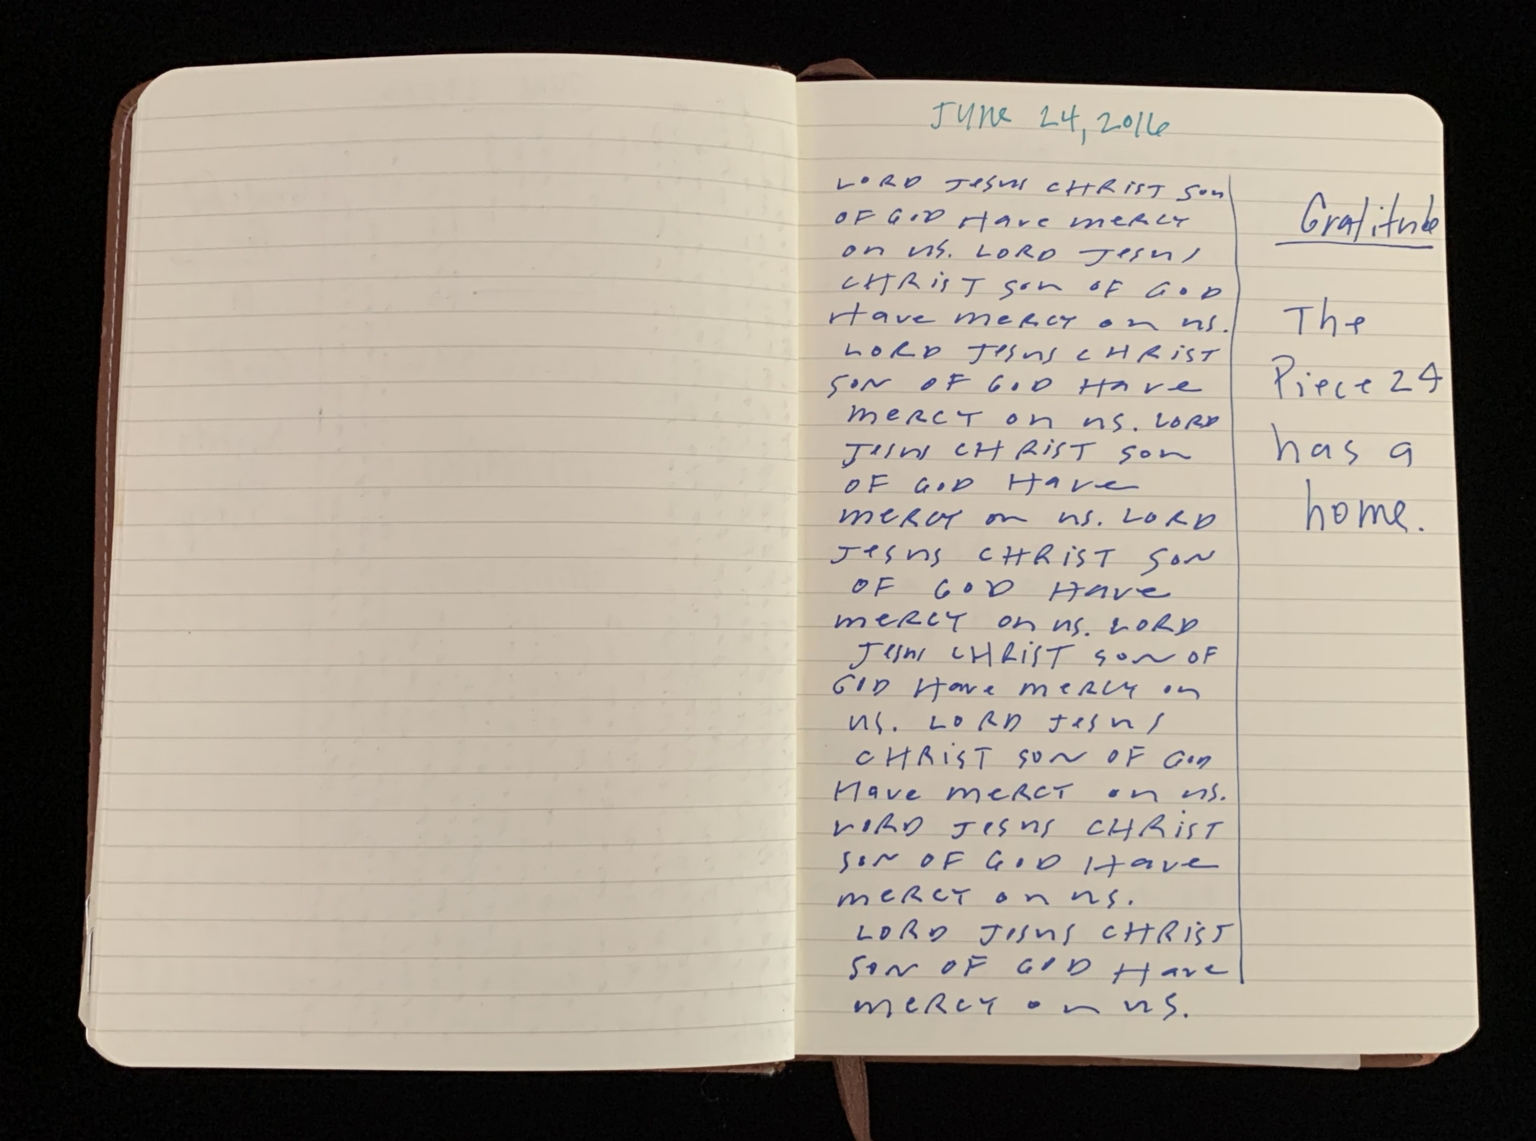 June 24, 2016
LORD Jesus CHRIST Son
OF GOD Have meRCY
on us. LORD Jesus
CHRIST Son OF GOD
Have meRCY on us.
LORD Jesus CHRIST
SON OF GOD Have
meRCY on us. LORD
Jesus CHRIST Son
OF GOD Have
meRCY on us. LORD
Jesus CHRIST SON
OF GOD Have
meRCY on us. LORD
Jesus CHRIST SON OF
GOD Have meRCY on
us. LORD Jesus
CHRIST SON OF GOD
Have meRCY on us.
LORD Jesus CHRIST
SON OF GOD Have
meRCY on us.
LORD Jesus CHRIST
SON OF GOD Have
meRCY on us.
Gratitude
The
Piece 24
has a
home.